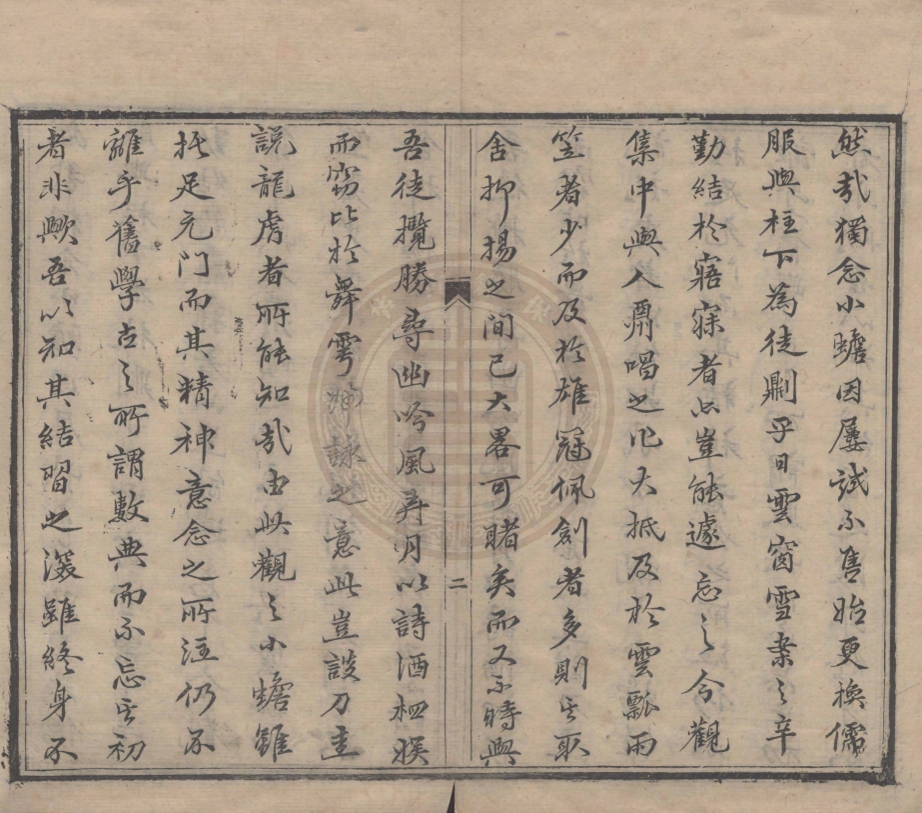 然哉獨念小蟾因屢試不售始更換儒
服與柱下為徒剿乎日雲窗雪案之辛
勤結於寤寐者必豈能遽忘之今觀
集中與人賡唱之作大抵及於雲瓢雨
笠者少而及於雄冠佩劍者多則其取
舍抑揚之間已大畧可睹矣而又不時與
二
吾徒攬勝尋幽吟風弄月以詩酒相娛
而竊比於舞雩歸詠之意此豈談刀圭
說龍虎者所能知哉由此觀之小蟾雖
托足元門而其精神意念之所注仍不
離乎舊學古之所謂數典而不忘其初
者非歟吾以知其結習之深雖終身不